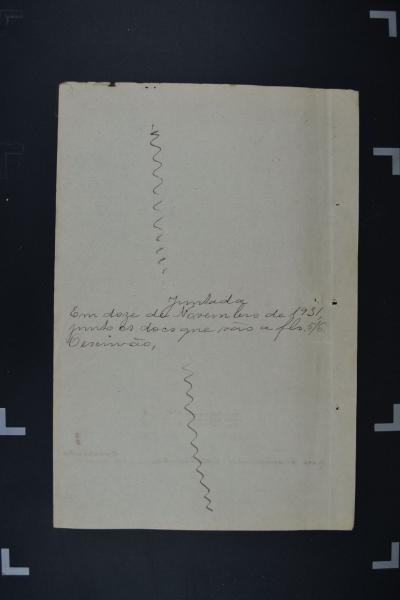 Juntada
Em doze de Novembro de 1931,
junto os docs que vão a fls. 5/6
O escrivão,